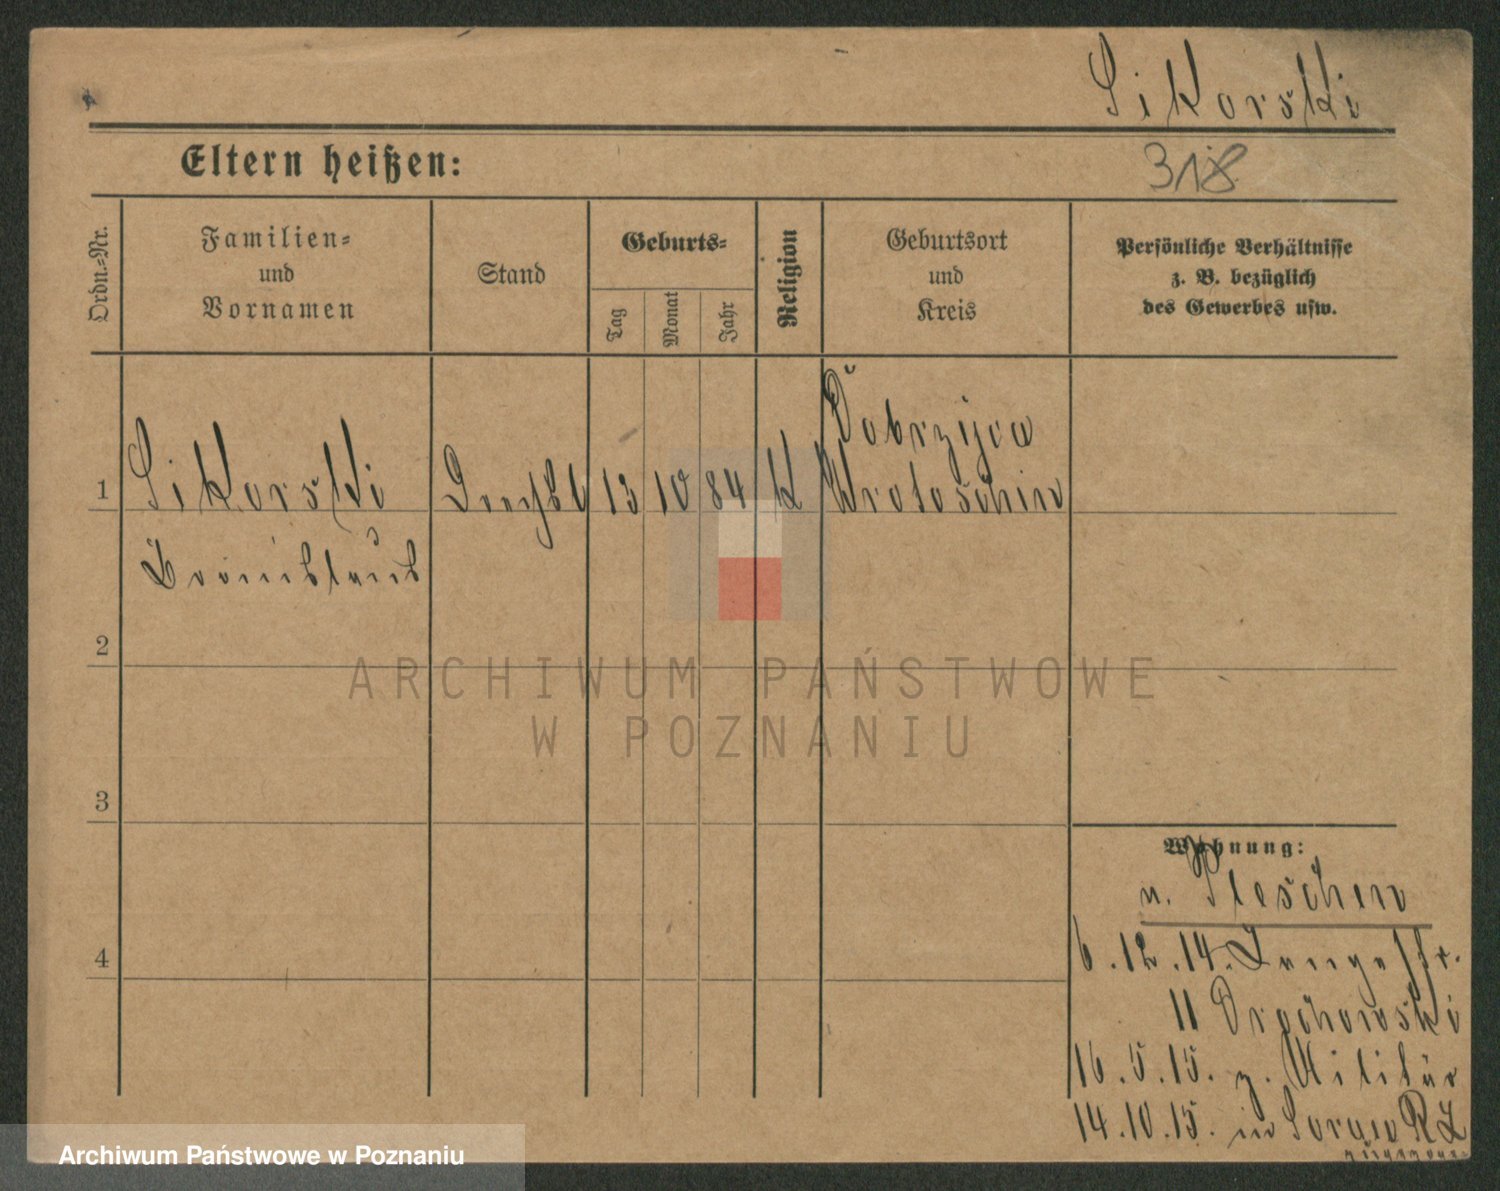 Sikorski
Eltern heißen:
318
Ordn.-Nr.
Familien-
und
Vornamen
Stand
Geburts-
Tag
Monat
Jahr
Religion
Geburtsort
und
Kreis
Persönliche Verhältnisse
z. B. bezüglich
des Gewerbes usw.
1
Sikorski
13
10
84
K
Dobrzyca
Krotoschin
Bronislaus
2
ARCHIWUM PAŃSTWOWE
W POZNANIU
3
Wohnung:
n. Pleschen
6.12.14. Langestr.
4
11 Drochowski
16.5.15. z. Militär
14.10.15. in Sorau
Archiwum Państwowe w Poznaniu